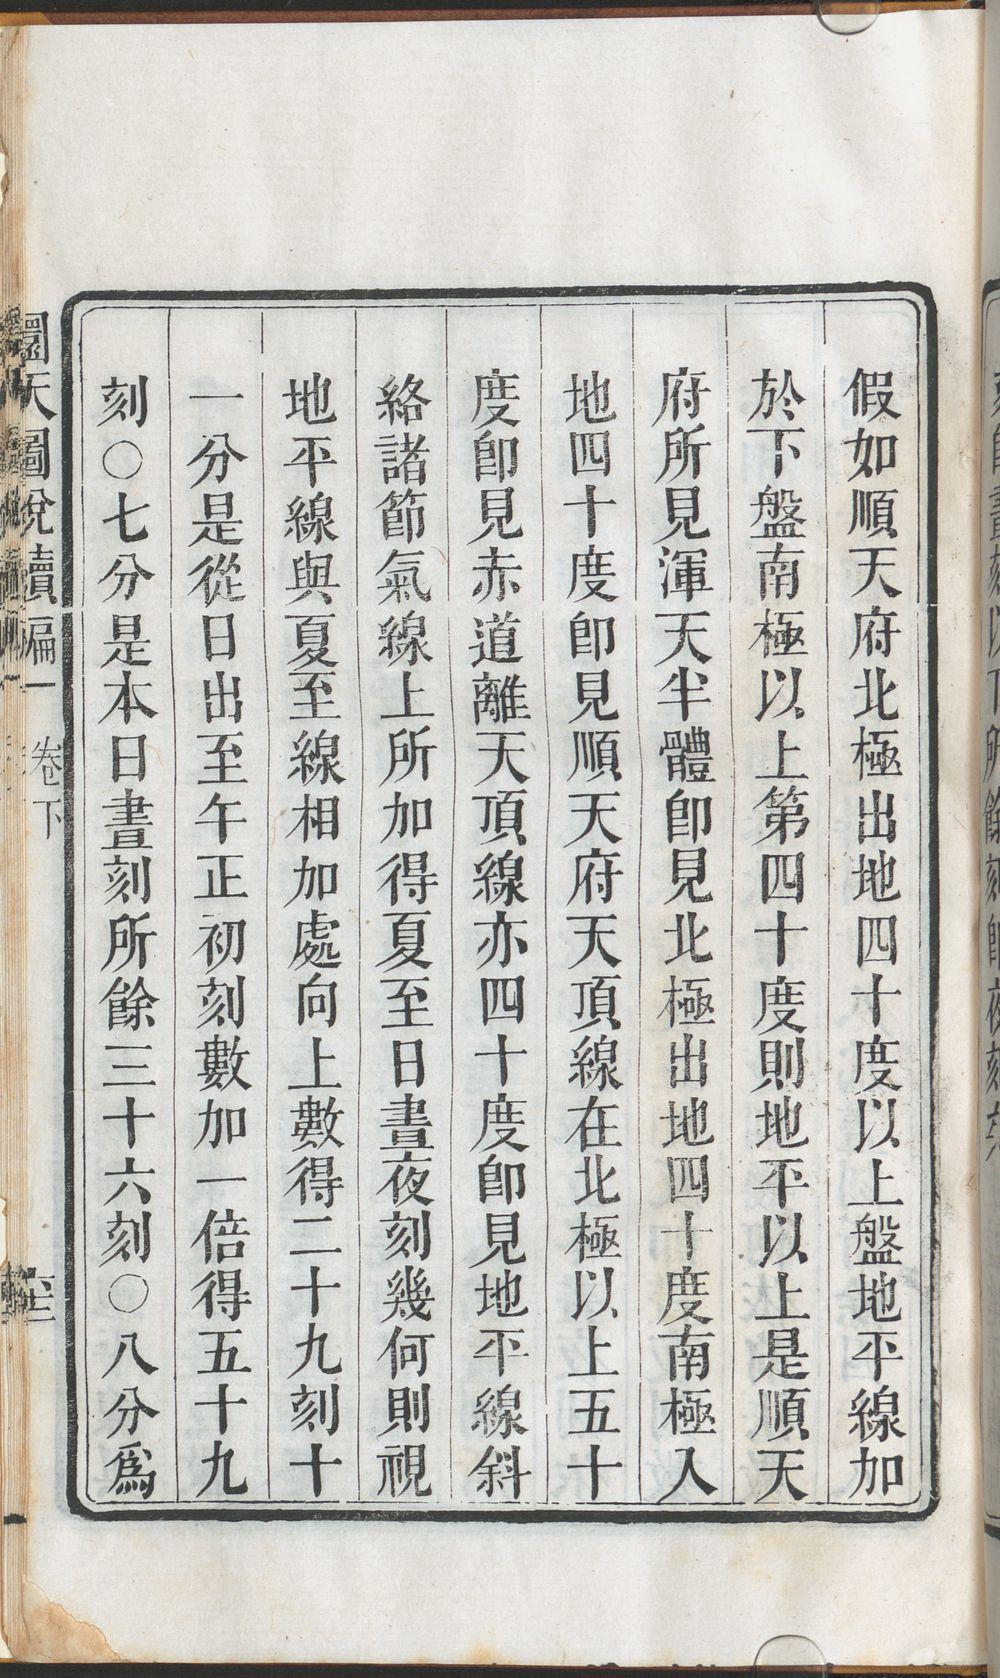 假如順天府北極出地四十度以上盤地平線加
於下盤南極以上第四十度則地平以上是順天
府所見渾天半體卽見北極出地四十度南極入
地四十度卽見順天府天頂線在北極以上五十
度卽見赤道離天頂線亦四十度卽見地平線斜
絡諸節氣線上所加得夏至日晝夜刻幾何則視
地平線與夏至線相加處向上數得二十九刻十
一分是從日出至午正初刻數加一倍得五十九
刻〇七分是本日晝刻所餘三十六刻〇八分爲
圜天圖說續編 卷下